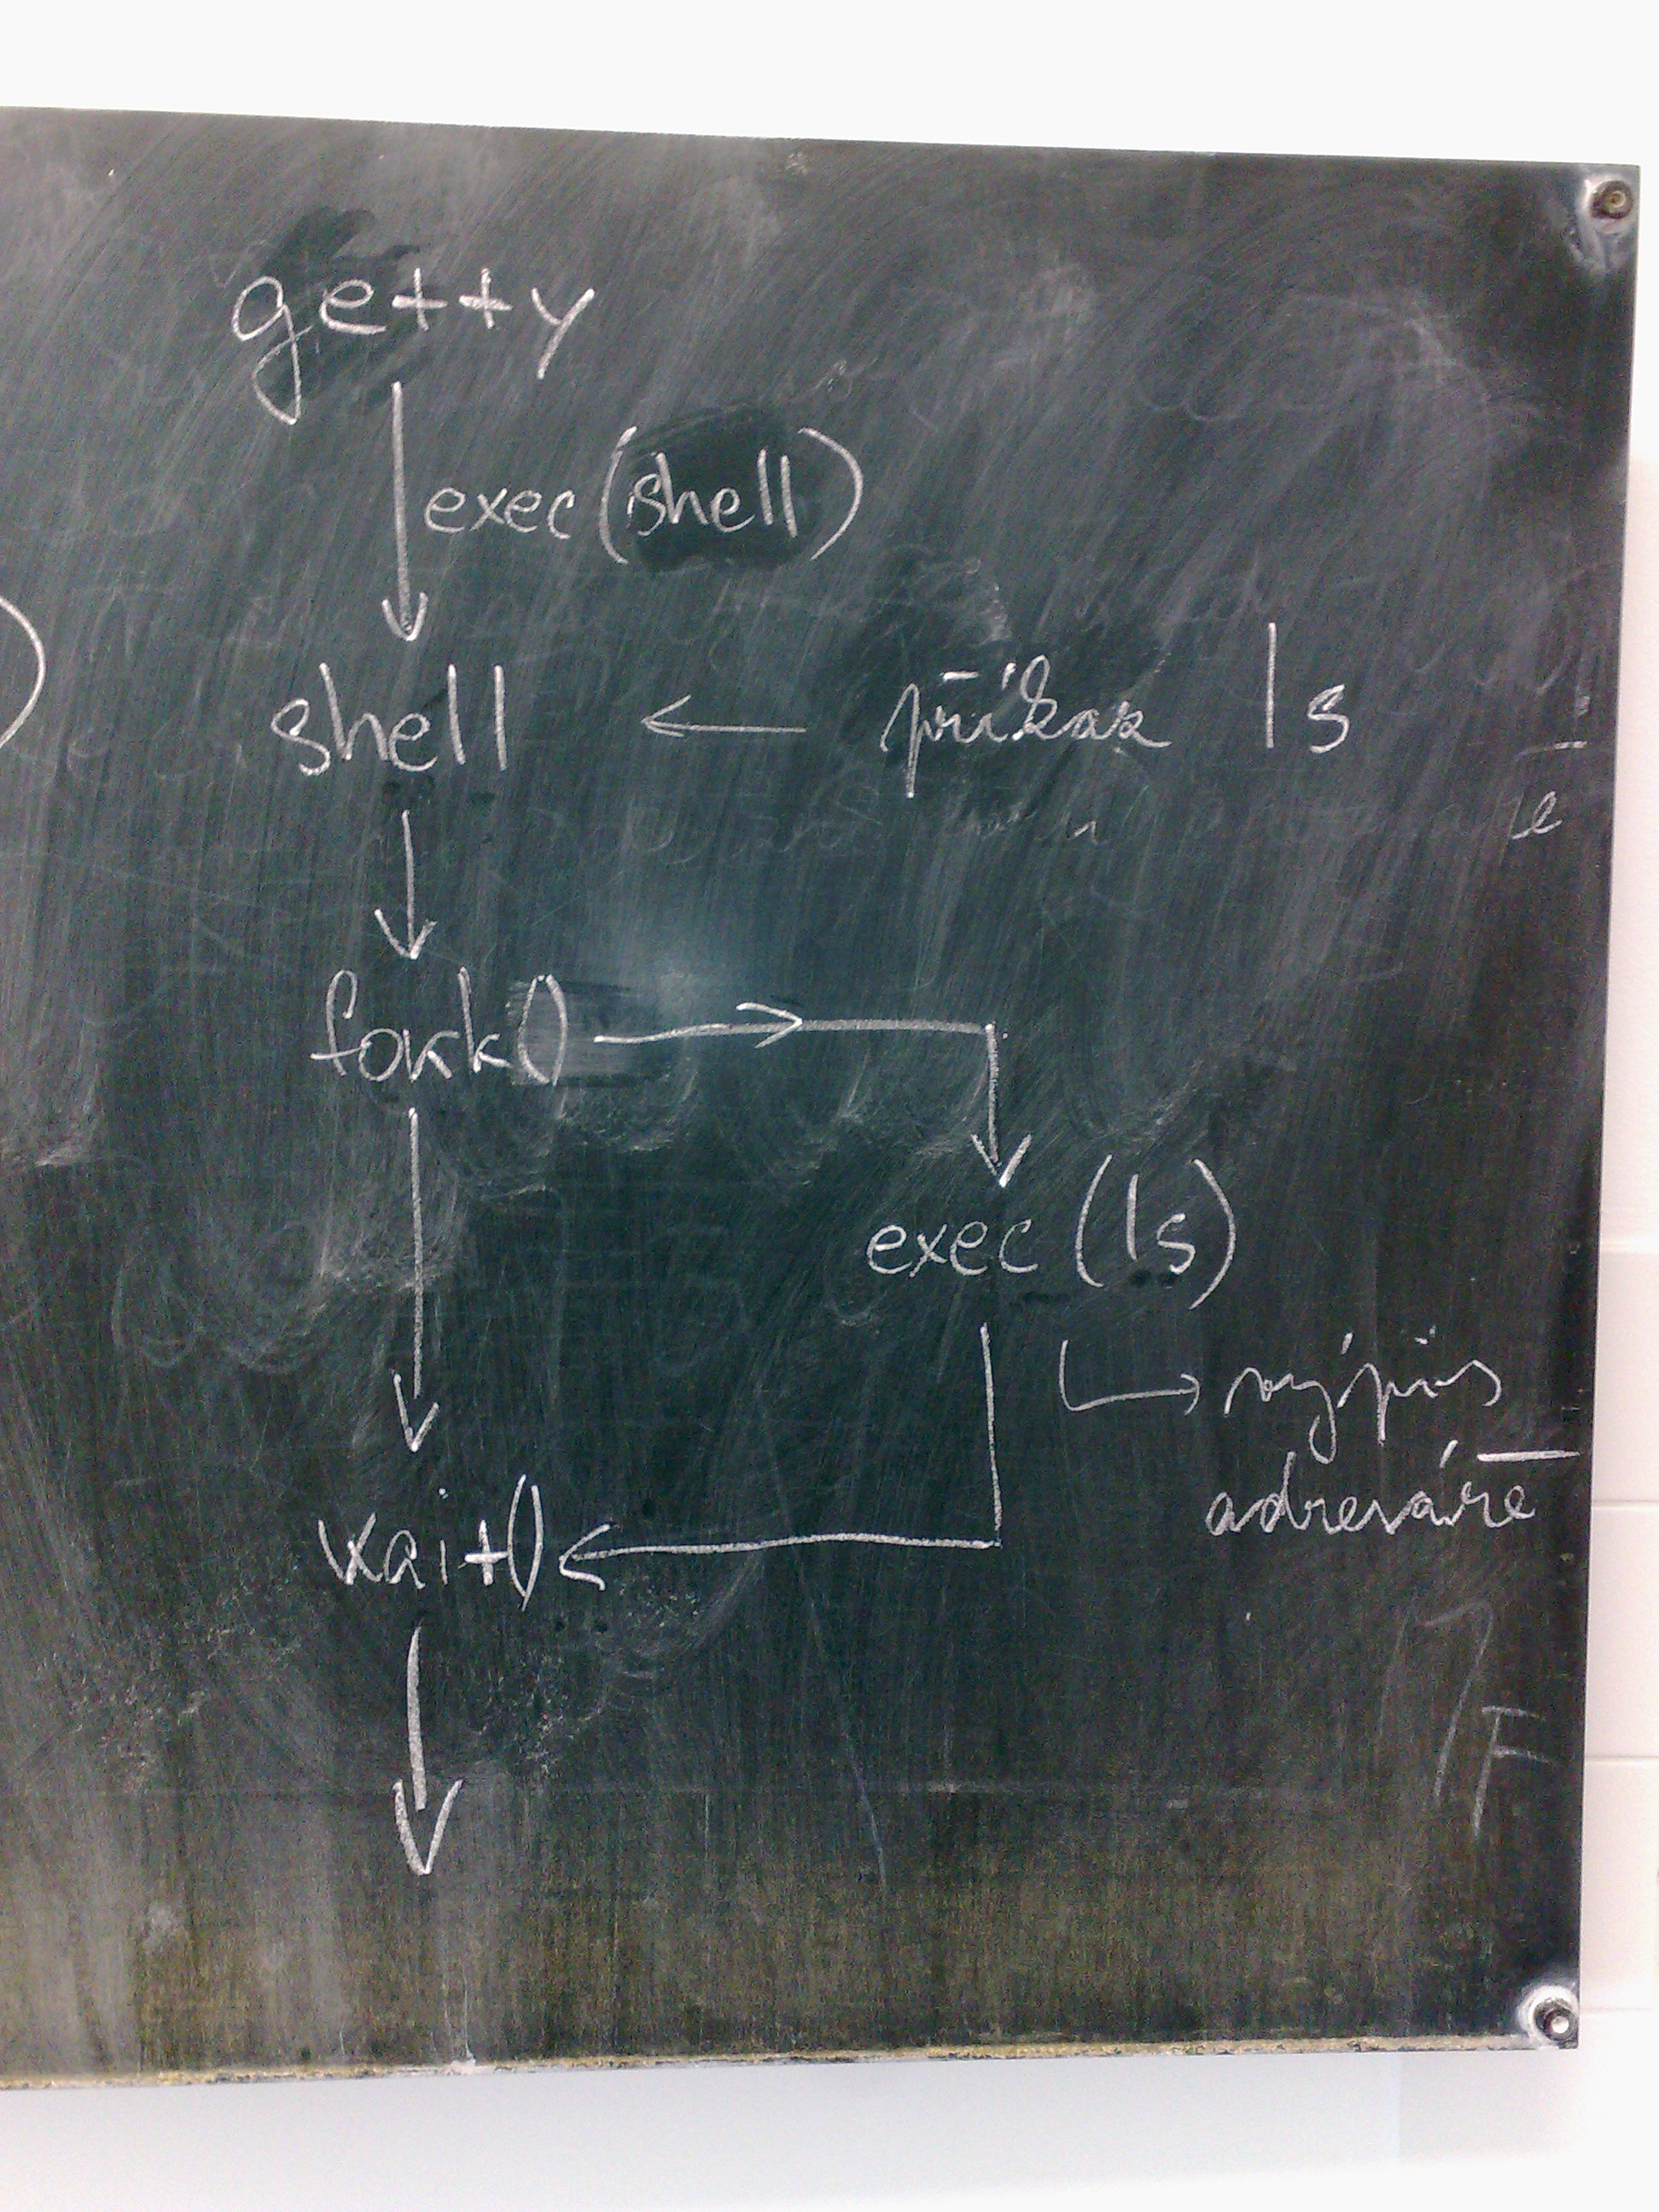 getty
exec(shell)
shell ← příkaz ls
fork()
exec (ls)
výpis
adresáře
wait()